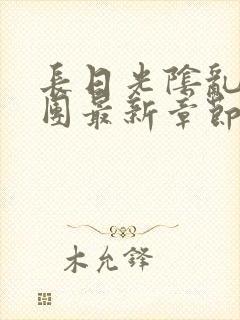 長日光陰亂
團最新章節
木允鋒